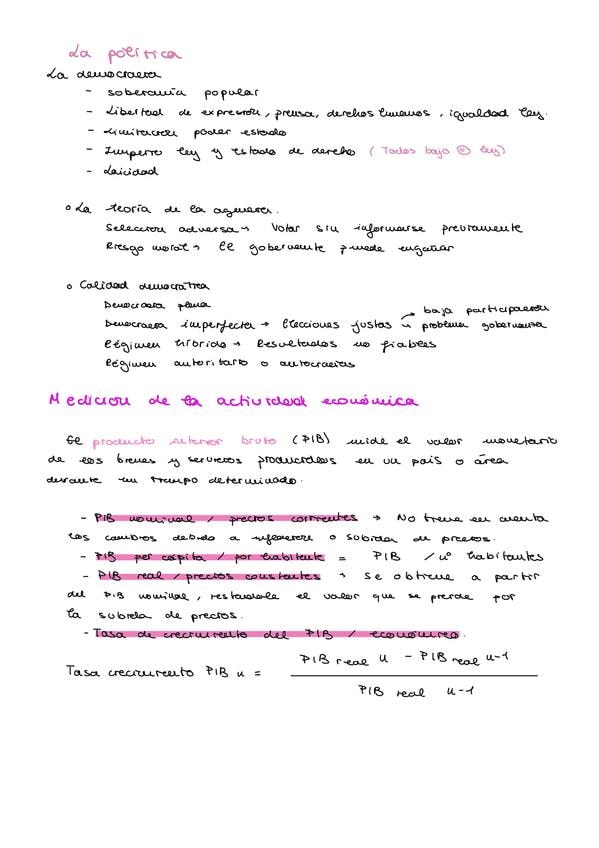 La política
La democracia
- soberanía popular
- Libertad de expresión, prensa, derechos humanos, igualdad ley.
- Limitación poder estado
- Imperio ley y estado de derecho (Todos bajo = ley)
- Laicidad
o La teoría de la agencia.
Selección adversa → Votar sin informarse previamente
Riesgo moral → El gobernante puede engañar
o Calidad democrática
Democracia plena
Democracia imperfecta → Elecciones justas
baja participación
problema gobernanza
Régimen híbrido → Resultados no fiables
Régimen autoritario o autocracias
Medición de la actividad económica
El producto interior bruto (PIB) mide el valor monetario
de los bienes y servicios producidos en un país o área
durante un tiempo determinado.
- PIB nominal / precios corrientes → No tiene en cuenta
los cambios debido a inflación o subida de precios.
- PIB per cápita / por habitante = PIB / nº habitantes
- PIB real / precios constantes → Se obtiene a partir
del PIB nominal, restandole el valor que se pierde por
la subida de precios.
- Tasa de crecimiento del PIB / económico.
Tasa crecimiento PIB n =
PIB real n - PIB real n-1
PIB real n-1